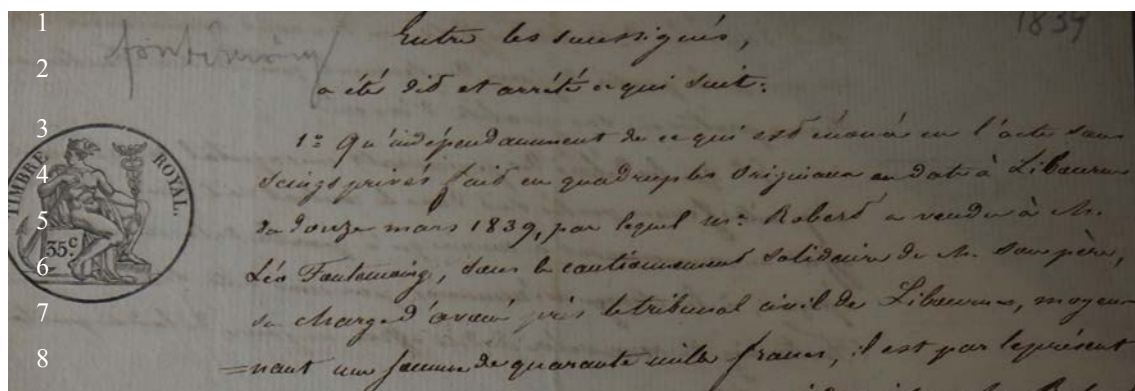 1 Entre les soussignés, 1839
fontemoing
2 a été dit et arrêté ce qui suit:
3 1º Qu'indépendamment de ce qui est énoncé en l'acte sous
4 seings privés fait en quadruples originaux en date à Libourne
5 du douze mars 1839, par lequel mr. Robert a vendu à M.
6 Léo Fontemoing, sous le cautionnement solidaire de M. son père,
7 sa charge d'avoué près le tribunal civil de Libourne, moyen-
8 =nant une somme de quarante mille francs, il est par le présent
TIMBRE ROYAL.
35 c.